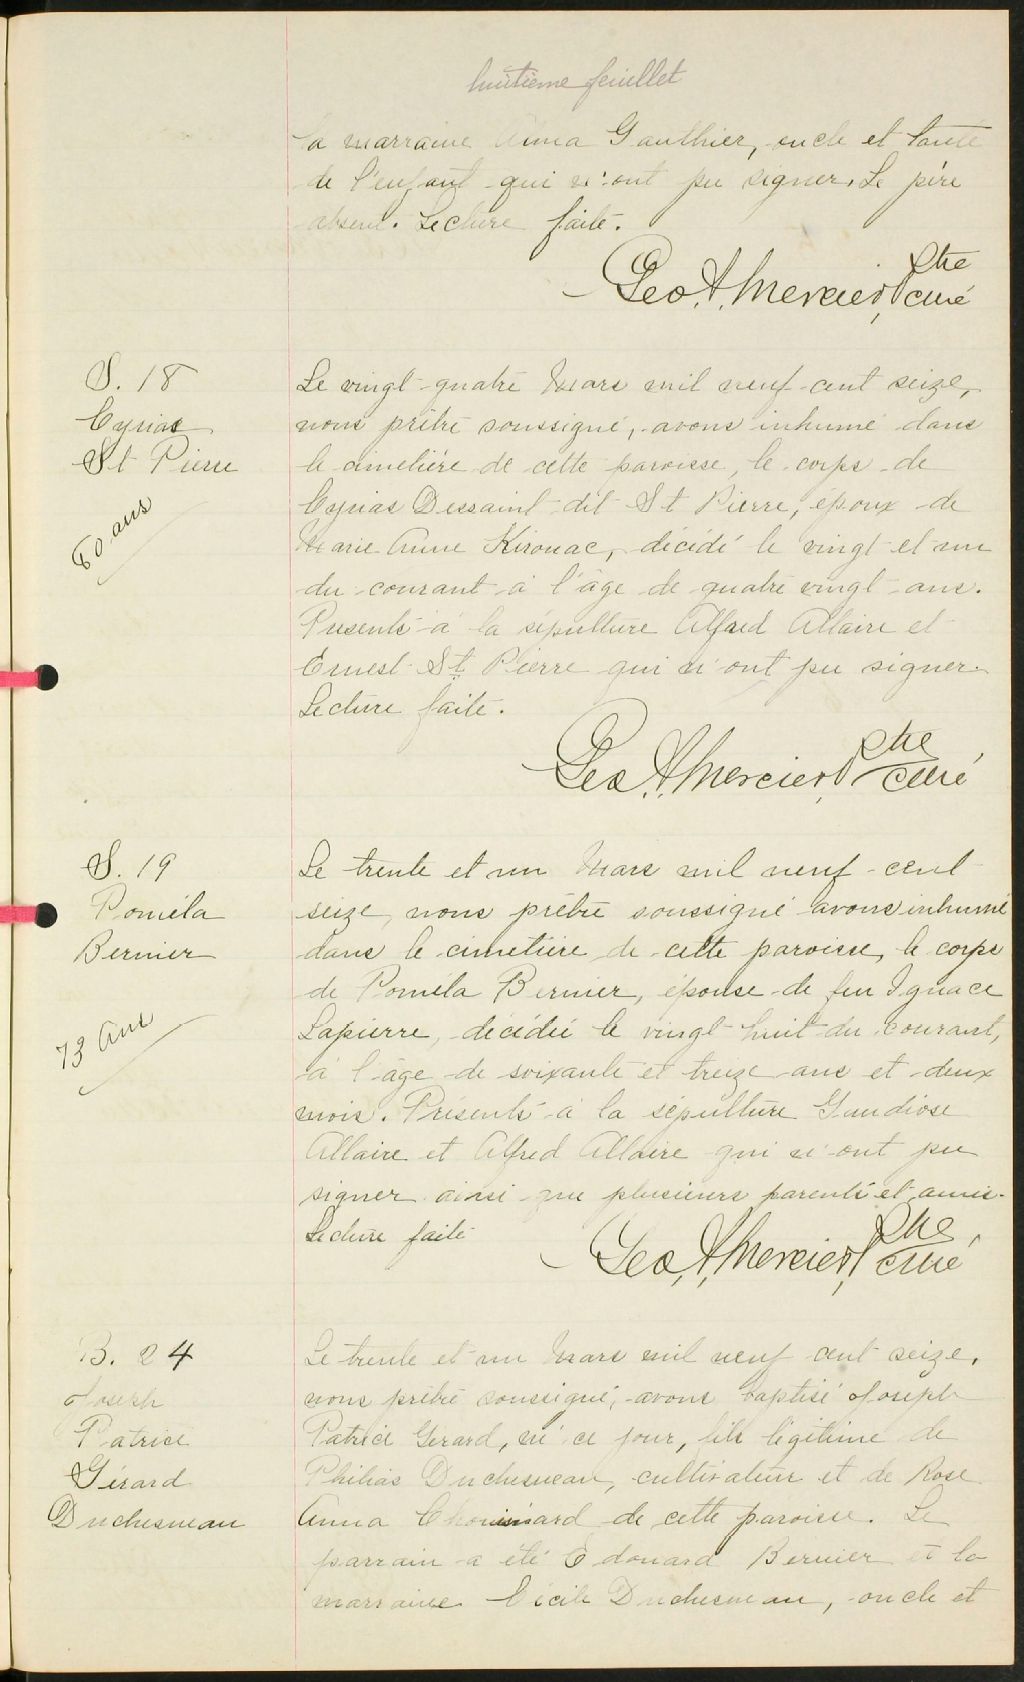 huitième feuillet
la marraine Anna Gauthier, oncle et tante
de l'enfant qui n'ont pu signer. Le père
absent. Lecture faite.
Geo. A. Mercier, Ptre
curé
S. 18
Cyrias
St Pierre
80 ans
Le vingt-quatre Mars mil neuf-cent seize,
nous prêtre soussigné, avons inhumé dans
le cimetière de cette paroisse, le corps de
Cyrias Dessaint dit St Pierre, époux de
Marie Anne Kirouac, décédé le vingt et un
du courant à l'âge de quatre vingt-ans.
Présents à la sépulture Alfred Allaire et
Ernest St Pierre qui n'ont pu signer.
Lecture faite.
Geo. A. Mercier, Ptre
curé
S. 19
Poméla
Bernier
73 Ans
Le trente et un Mars mil neuf-cent
seize, nous prêtre soussigné avons inhumé
dans le cimetière de cette paroisse, le corps
de Poméla Bernier, épouse de feu Ignace
Lapierre, décédée le vingt huit du courant,
à l'âge de soixante et treize ans et deux
mois. Présents à la sépulture Gaudiose
Allaire et Alfred Allaire qui n'ont pu
signer ainsi que plusieurs parents et amis.
Lecture faite
Geo. A. Mercier, Ptre
curé
B. 24
Joseph
Patrice
Gérard
Duchesneau
Le trente et un Mars mil neuf cent seize,
nous prêtre soussigné, avons baptisé Joseph
Patrice Gérard, né ce jour, fils légitime de
Philias Duchesneau, cultivateur et de Rose
Anna Chouinard de cette paroisse. Le
parrain a été Edouard Bernier et la
marraine Cécile Duchesneau, oncle et